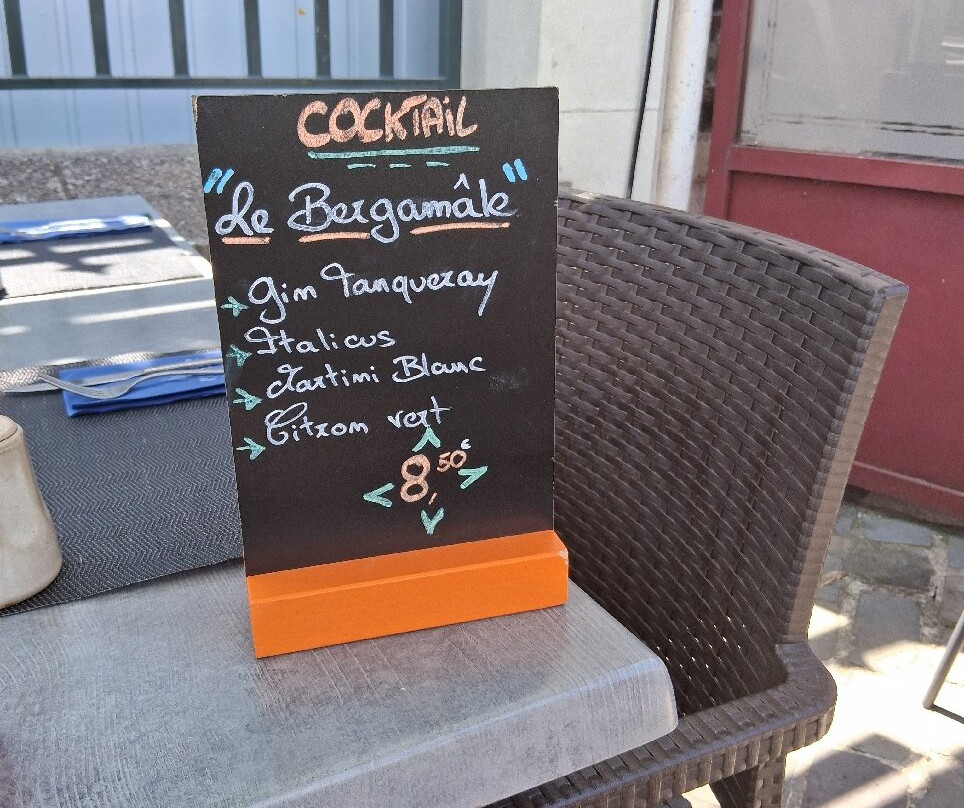 COCKTAIL
"Le Bergamâle"
Gin Tanqueray
Italicus
Martini Blanc
Citron vert
8,50€